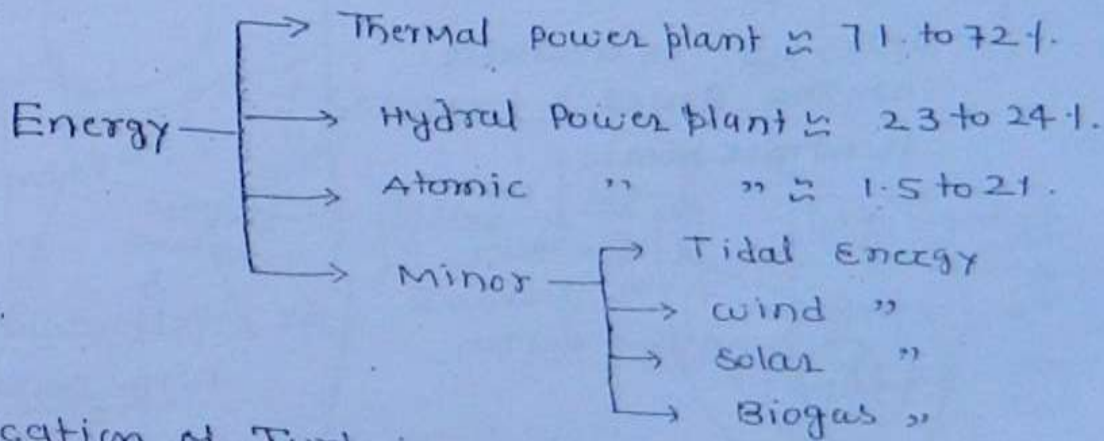 Thermal power plant ≈ 71. to 72 %.
Energy
Hydral Power plant ≈ 23 to 24 %.
Atomic " " ≈ 1.5 to 2%.
Minor
Tidal Energy
wind "
solar "
Biogas "